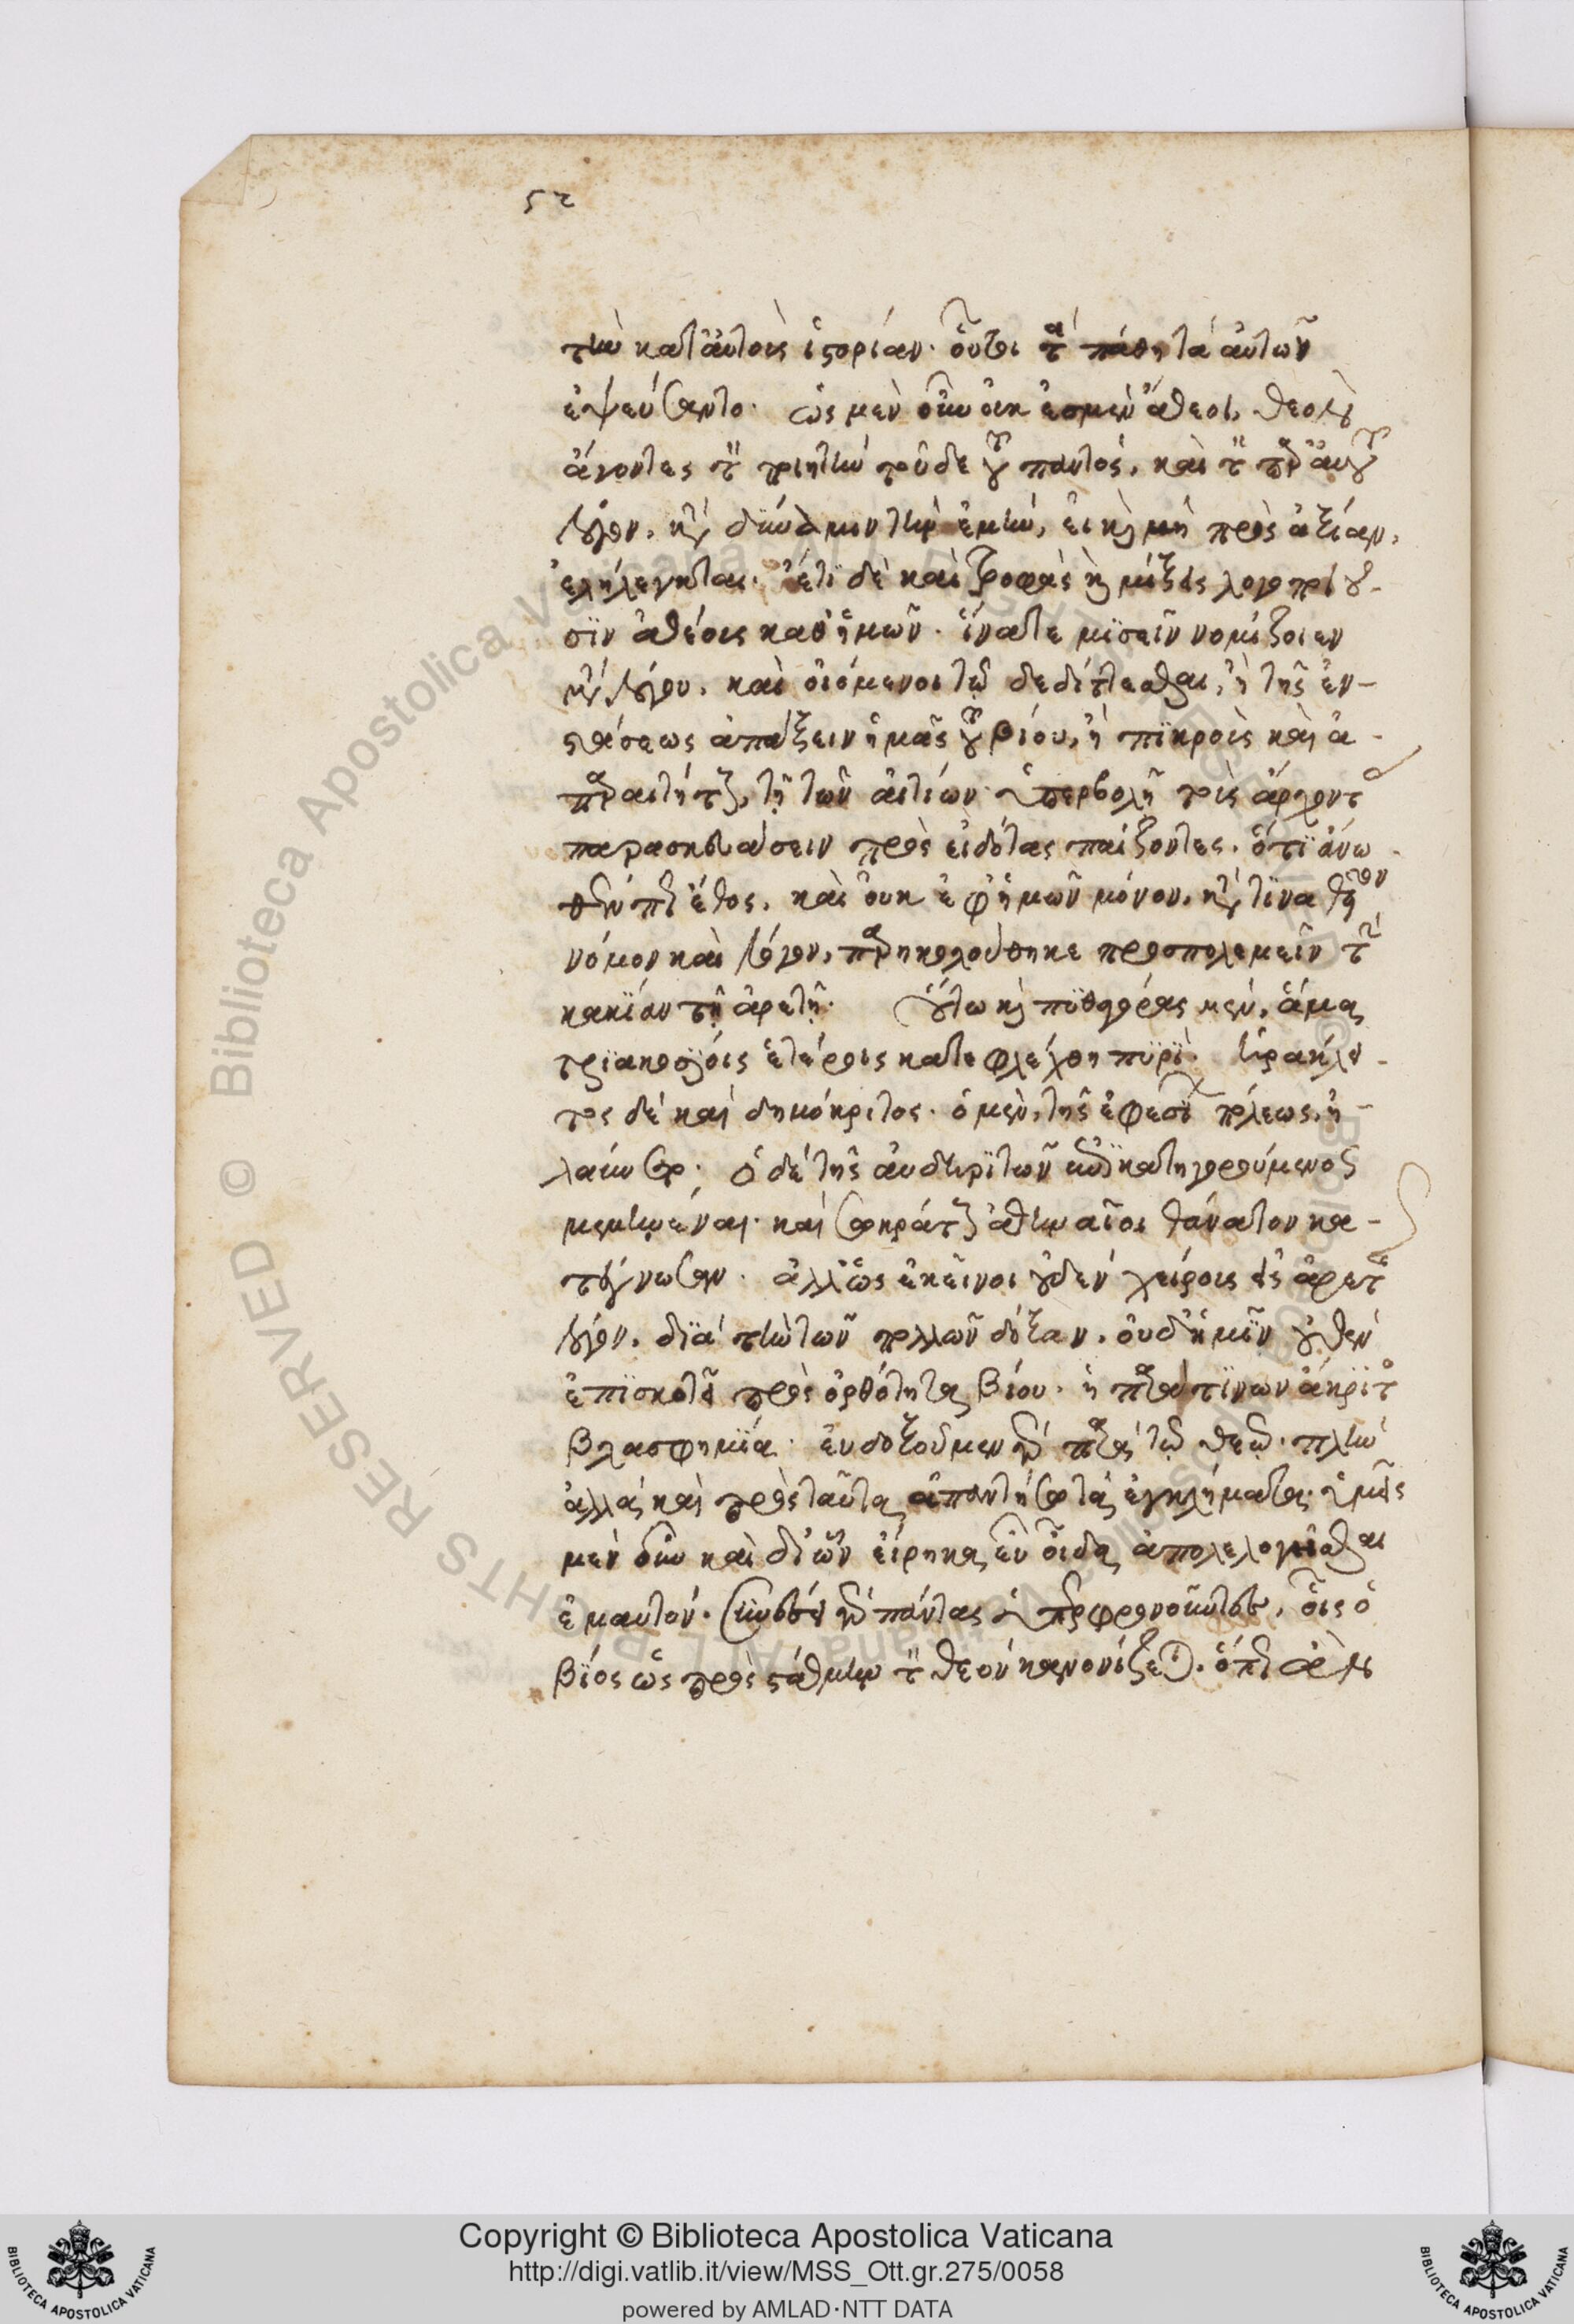 52
τὴν κατ' αὐτοὺς ἱστορίαν. οὗτοι τὰ πάθη τὰ αὐτῶν
ἐψεύσαντο. ὡς μὲν οὖν οὐκ ἐσμὲν ἄθεοι, θεὸν
ἄγοντες τὸν ποιητὴν τοῦδε τοῦ παντός, καὶ τὸν παρ' αὐτοῦ
λόγον, κατὰ δύναμιν τὴν ἐμὴν, εἰ καὶ μὴ πρὸς ἀξίαν,
ἐλήλεγκται. ἔτι δὲ καὶ τροφὰς καὶ μίξεις λογοποιοῦ-
σιν ἀθέους καθ' ἡμῶν. ἵνα τε μισεῖν νομίζοιεν
κατὰ λόγου. καὶ οἰόμενοι τῷ δεδίττεσθαι, ἢ τῆς ἐν-
στάσεως ἀπάξειν ἡμᾶς τοῦ βίου, ἢ πικροὺς καὶ ἀ-
παραιτήτους, τῇ τῶν αἰτιῶν ὑπερβολῇ τοὺς ἄρχοντας
παρασκευάσειν πρὸς εἰδότας παίζοντες. ὅτι ἄνω-
θέν πως ἔθος, καὶ οὐκ ἐφ' ἡμῶν μόνον, κατά τινα θεῖον
νόμον καὶ λόγον, παρηκολούθηκε προσπολεμεῖν τὴν
κακίαν τῇ ἀρετῇ. οὕτω καὶ πυθαγόρας μὲν, ἅμα
τριακοσίοις ἑτέροις κατεφλέχθη πυρί. ἡράκλει-
τος δὲ καὶ δημόκριτος. ὁ μὲν, τῆς ἐφεσίων πόλεως, ἠ-
λαύνετο. ὁ δὲ τῆς ἀβδηριτῶν κατηγορούμενος
μεμηνέναι. καὶ σωκράτους ἀθηναῖοι θάνατον κα-
τέγνωσαν. ἀλλ' ὡς ἐκεῖνοι οὐδὲν χείρους εἰς ἀρετῆς
λόγον, διὰ τὴν τῶν πολλῶν δόξαν. οὐδ' ἡμῖν οὐθὲν
ἐπισκοτεῖ πρὸς ὀρθότητα βίου. ἡ παρά τινων ἄκριτος
βλασφημία. εὐδοξοῦμεν γὰρ παρὰ τῷ θεῷ. πλὴν
ἀλλὰ καὶ πρὸς ταῦτα ἀπαντήσω τὰ ἐγκλήματα. ὑμεῖς
μὲν οὖν καὶ δι' ὧν εἴρηκα εὖ οἶδα ἀπολελογῆσθαι
ἐμαυτόν. συνέσει γὰρ πάντας ὑπερφρονοῦντες, οἷς ὁ
βίος ὡς πρὸς στάθμην τὸν θεὸν κανονίζεται. ὅπως